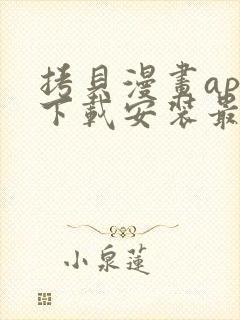 拷貝漫畫ap
下載安裝最
小泉蓮